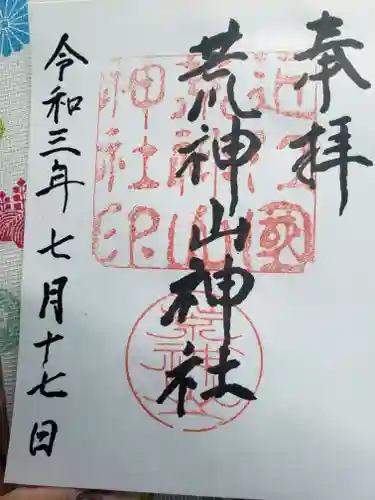 奉拝
荒神山神社
近江國
荒神山
神社印
令和三年七月十七日